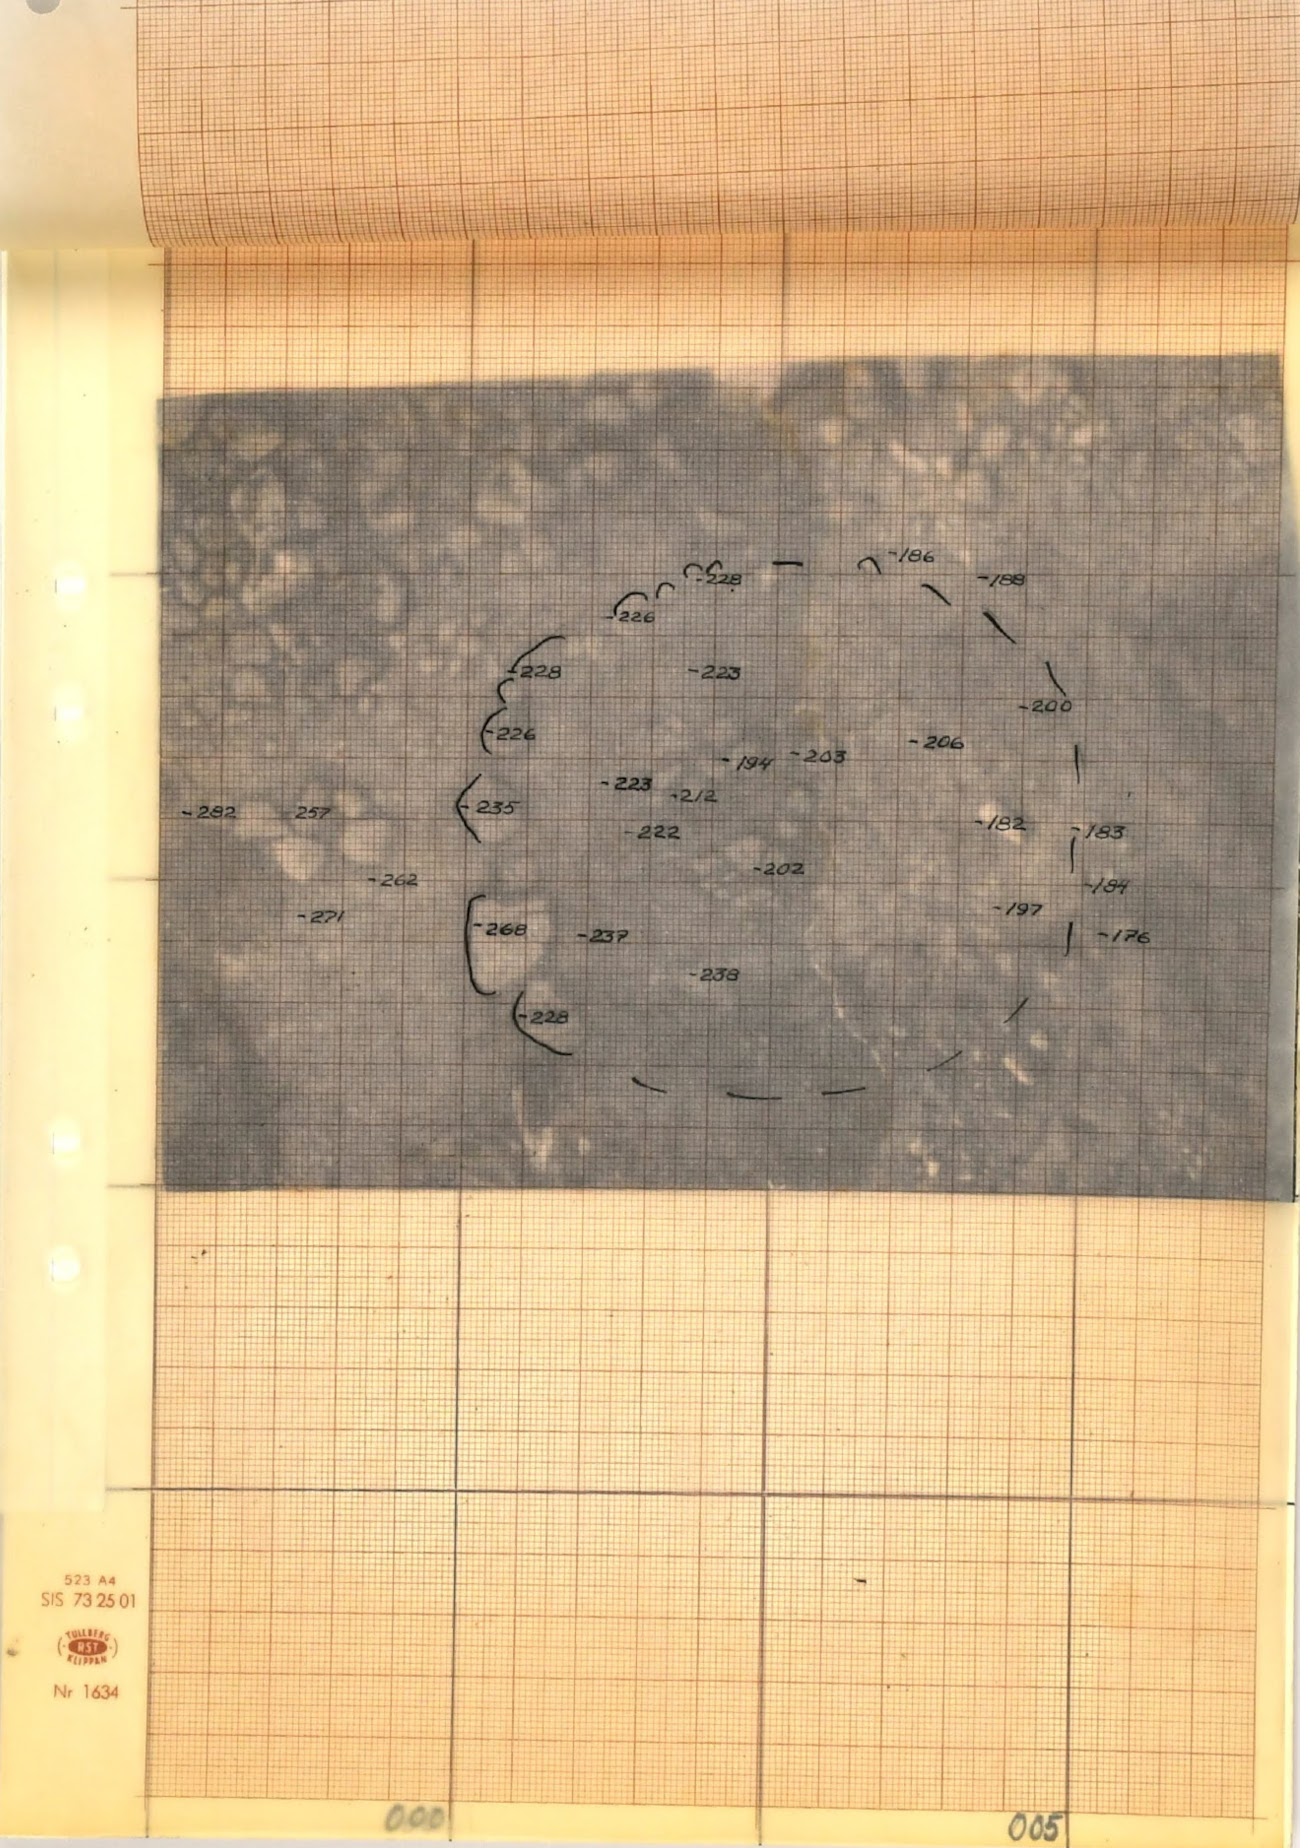 -186
-188
-228
-226
-228
-223
-200
-226
-206
-203
-194
-223
-212
-235
-282
257
-222
-182
-183
-202
-262
-184
-197
-271
-268
-237
-176
-238
-228
523 A4
SIS 73 25 01
TULLBERG
RST
KLIPPAN
Nr 1634
000
005